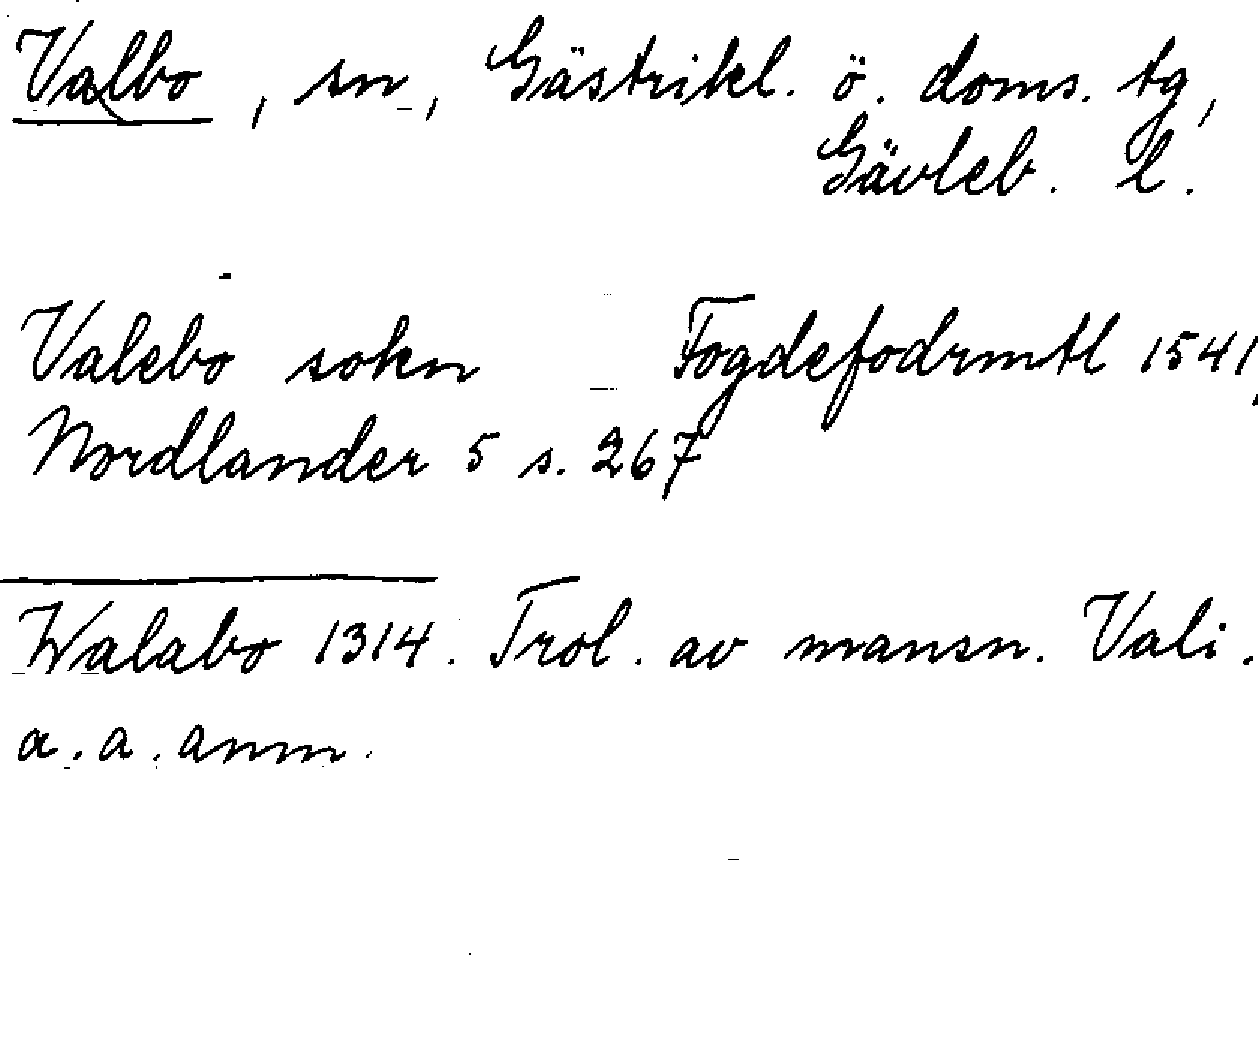 Valbo, sn, Gästrikl. ö. doms. tg,
Gävleb. l.
Valebo sokn Fogdefodrmtl 1541,
Nordlander 5 s. 267
Walabo 1314. Trol. av mansn. Vali.
a. a. anm.